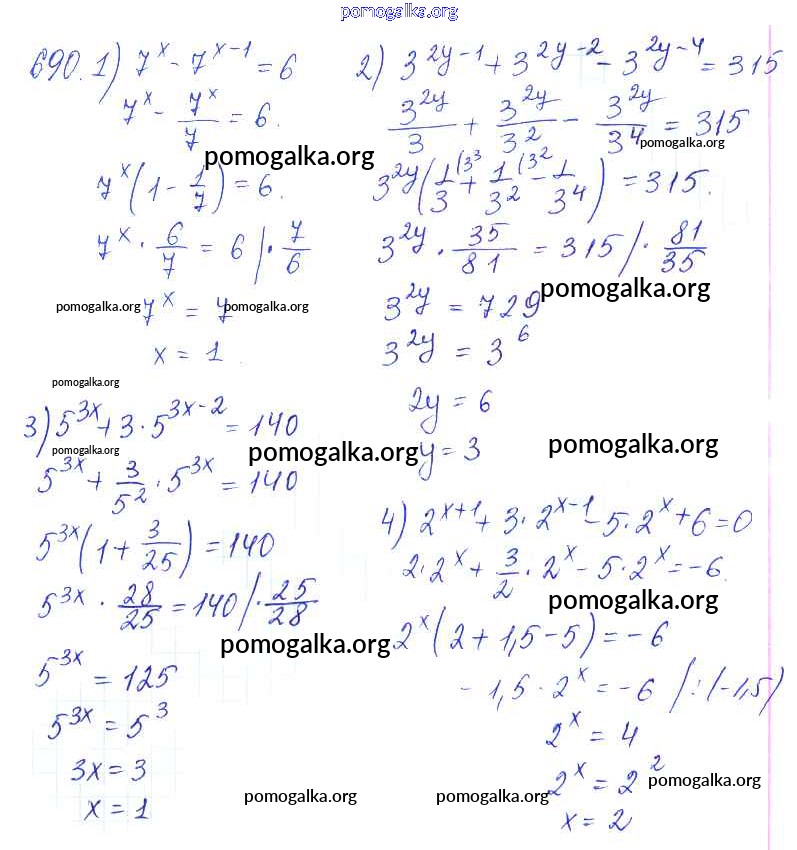 pomogalka.org
690. 1) 7^x - 7^(x-1) = 6
7^x - 7^x/7 = 6.
pomogalka.org
7^x(1 - 1/7) = 6.
7^x · 6/7 = 6 |· 7/6
pomogalka.org
7^x = 7
pomogalka.org
x = 1
2) 3^(2y-1) + 3^(2y-2) - 3^(2y-4) = 315
3^(2y)/3 + 3^(2y)/3^2 - 3^(2y)/3^4 = 315
pomogalka.org
3^(2y)(1/3 (3^3 + 1/3^2 (3^2 - 1/3^4) = 315.
3^(2y) · 35/81 = 315 /· 81/35
3^(2y) = 729
pomogalka.org
3^(2y) = 3^6
2y = 6
y = 3
pomogalka.org
pomogalka.org
3) 5^(3x) + 3 · 5^(3x-2) = 140
pomogalka.org
pomogalka.org
5^(3x) + 3/5^2 · 5^(3x) = 140
5^(3x)(1 + 3/25) = 140
5^(3x) · 28/25 = 140 /· 25/28
pomogalka.org
5^(3x) = 125
5^(3x) = 5^3
3x = 3
x = 1
pomogalka.org
4) 2^(x+1) + 3 · 2^(x-1) - 5 · 2^x + 6 = 0
2 · 2^x + 3/2 · 2^x - 5 · 2^x = -6.
pomogalka.org
2^x(2 + 1,5 - 5) = -6
- 1,5 · 2^x = -6 /:(-1,5)
2^x = 4
2^x = 2^2
pomogalka.org
pomogalka.org
x = 2